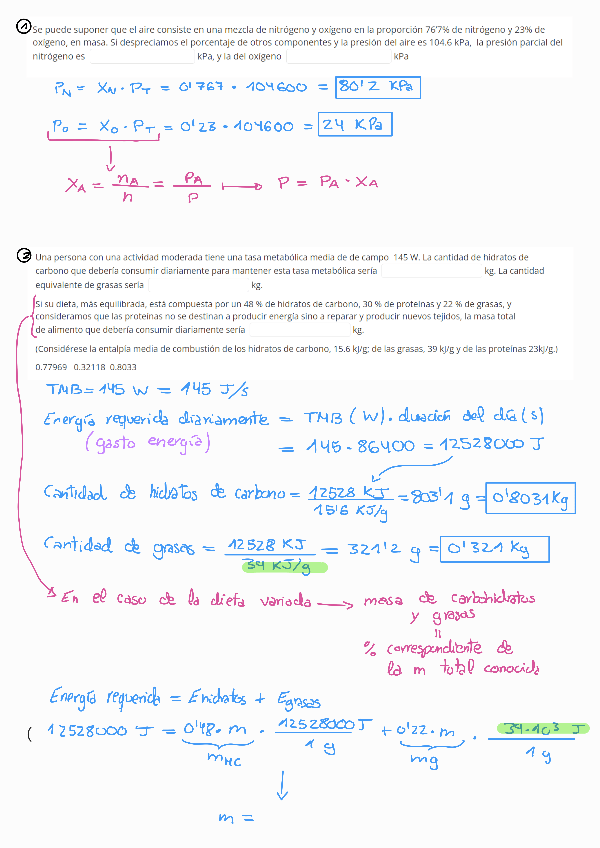 1 Se puede suponer que el aire consiste en una mezcla de nitrógeno y oxígeno en la proporción 76'7% de nitrógeno y 23% de
oxígeno, en masa. Si despreciamos el porcentaje de otros componentes y la presión del aire es 104.6 kPa, la presión parcial del
nitrógeno es kPa, y la del oxígeno kPa
P_N = X_N · P_T = 0'767 · 104600 = 80'2 KPa
P_O = X_O · P_T = 0'23 · 104600 = 24 KPa
X_A = n_A / n = P_A / P → P = P_A · X_A
2 Una persona con una actividad moderada tiene una tasa metabólica media de de campo 145 W. La cantidad de hidratos de
carbono que debería consumir diariamente para mantener esta tasa metabólica sería kg. La cantidad
equivalente de grasas sería kg.
Si su dieta, más equilibrada, está compuesta por un 48 % de hidratos de carbono, 30 % de proteinas y 22 % de grasas, y
consideramos que las proteinas no se destinan a producir energía sino a reparar y producir nuevos tejidos, la masa total
de alimento que debería consumir diariamente sería kg.
(Considérese la entalpía media de combustión de los hidratos de carbono, 15.6 kJ/g; de las grasas, 39 kJ/g y de las proteínas 23kJ/g.)
0.77969 0.32118 0.8033
TMB = 145 W = 145 J/s
Energía requerida diariamente = TMB (W) · duración del día (s)
(gasto energía) = 145 · 86400 = 12528000 J
Cantidad de hidratos de carbono = 12528 KJ / 15'6 KJ/g = 803'1 g = 0'8031 Kg
Cantidad de grasas = 12528 KJ / 34 KJ/g = 321'2 g = 0'321 Kg
En el caso de la dieta variada → masa de carbohidratos
y grasas
=
% correspondiente de
la m total conocida
Energía requerida = E hidratos + E grasas
( 12528000 J = 0'48 · m · 12528000 J / 1 g + 0'22 · m · 34·10³ J / 1 g
m_HC m_g
m =